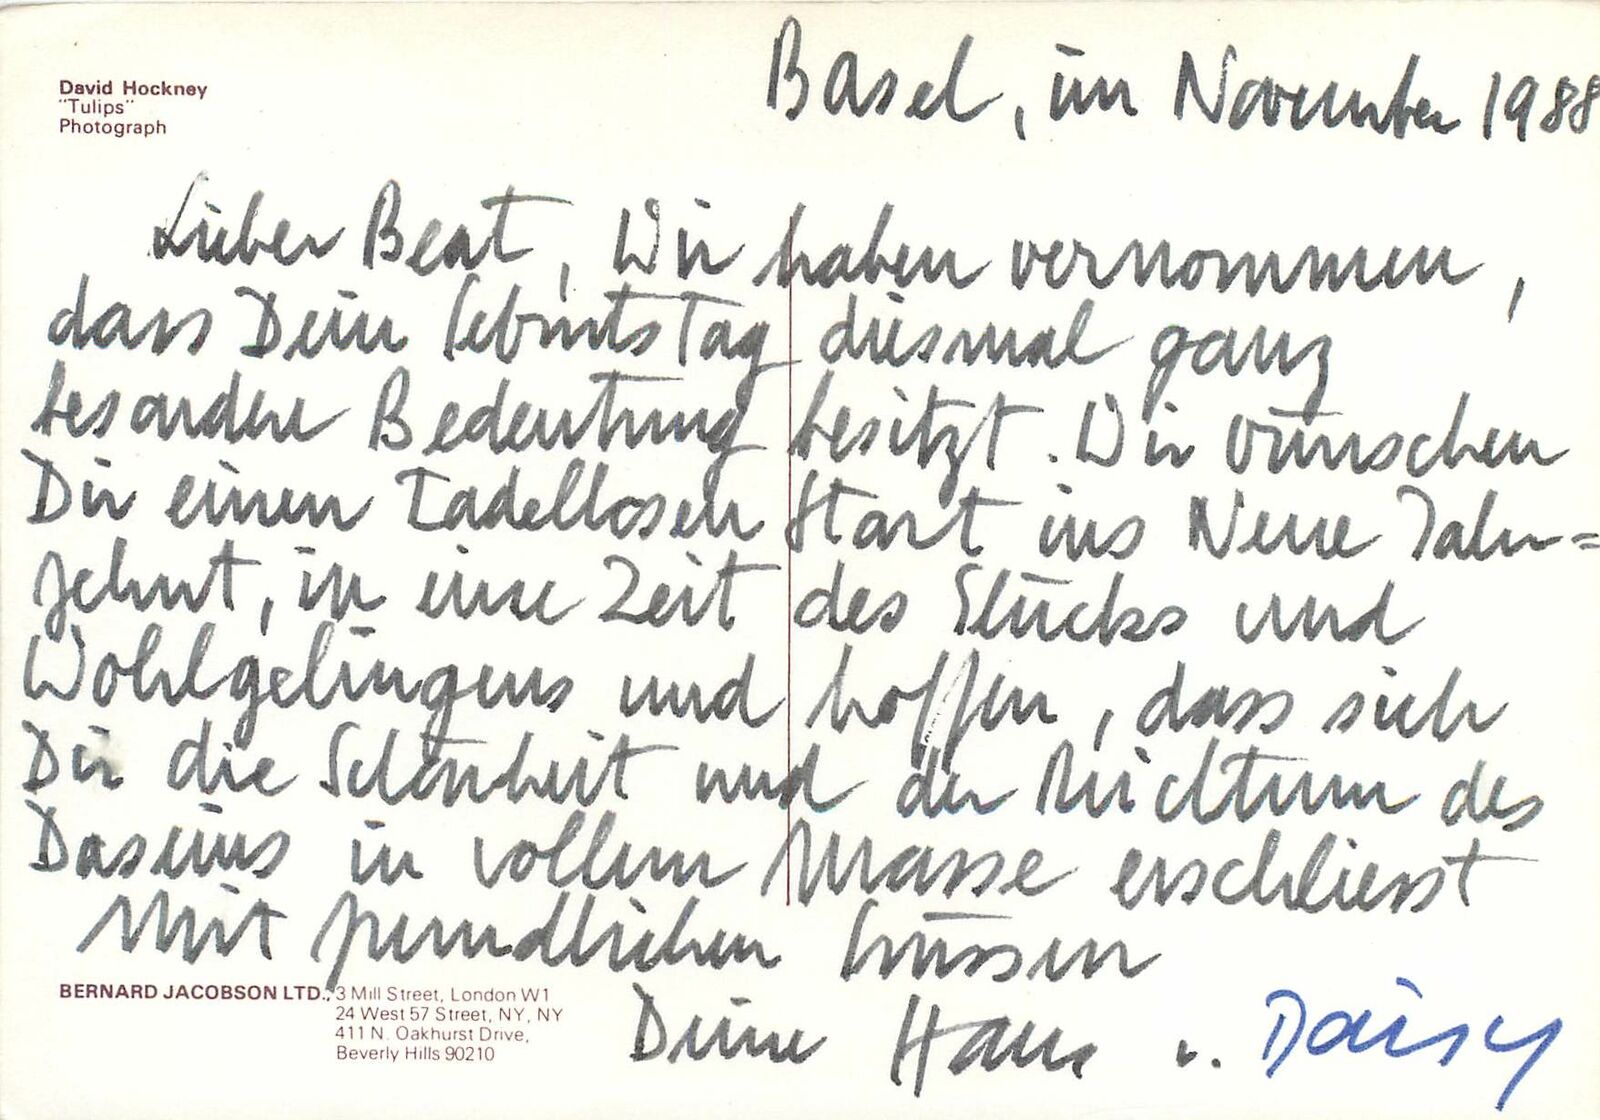 David Hockney
"Tulips"
Photograph
Basel, im November 1988
Lieber Beat, Wir haben vernommen,
dass Dein Geburtstag diesmal ganz
besondere Bedeutung besitzt. Wir wünschen
Dir einen Tadellosen Start ins Neue Jahr=
zehnt, in eine Zeit des Glücks und
Wohlgelingens und hoffen, dass sich
Dir die Schönheit und der Reichtum des
Daseins in vollem Masse erschliesst
Mit freundlichen Grüssen
Deine Hans u. Daisy
BERNARD JACOBSON LTD., 3 Mill Street, London W1
24 West 57 Street, NY, NY
411 N. Oakhurst Drive,
Beverly Hills 90210